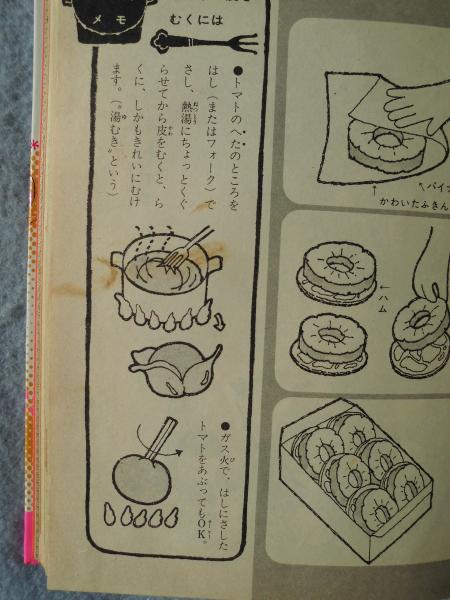 メモ
むくには
●トマトのへたのところを
はし(またはフォーク)で
さし、熱湯にちょっとくぐ
らせてから皮をむくと、ら
くに、しかもきれいにむけ
ます。(〝湯むき〟という)
●ガス火で、はしにさした
トマトをあぶってもOK。
パイ
かわいたふきん
ハム